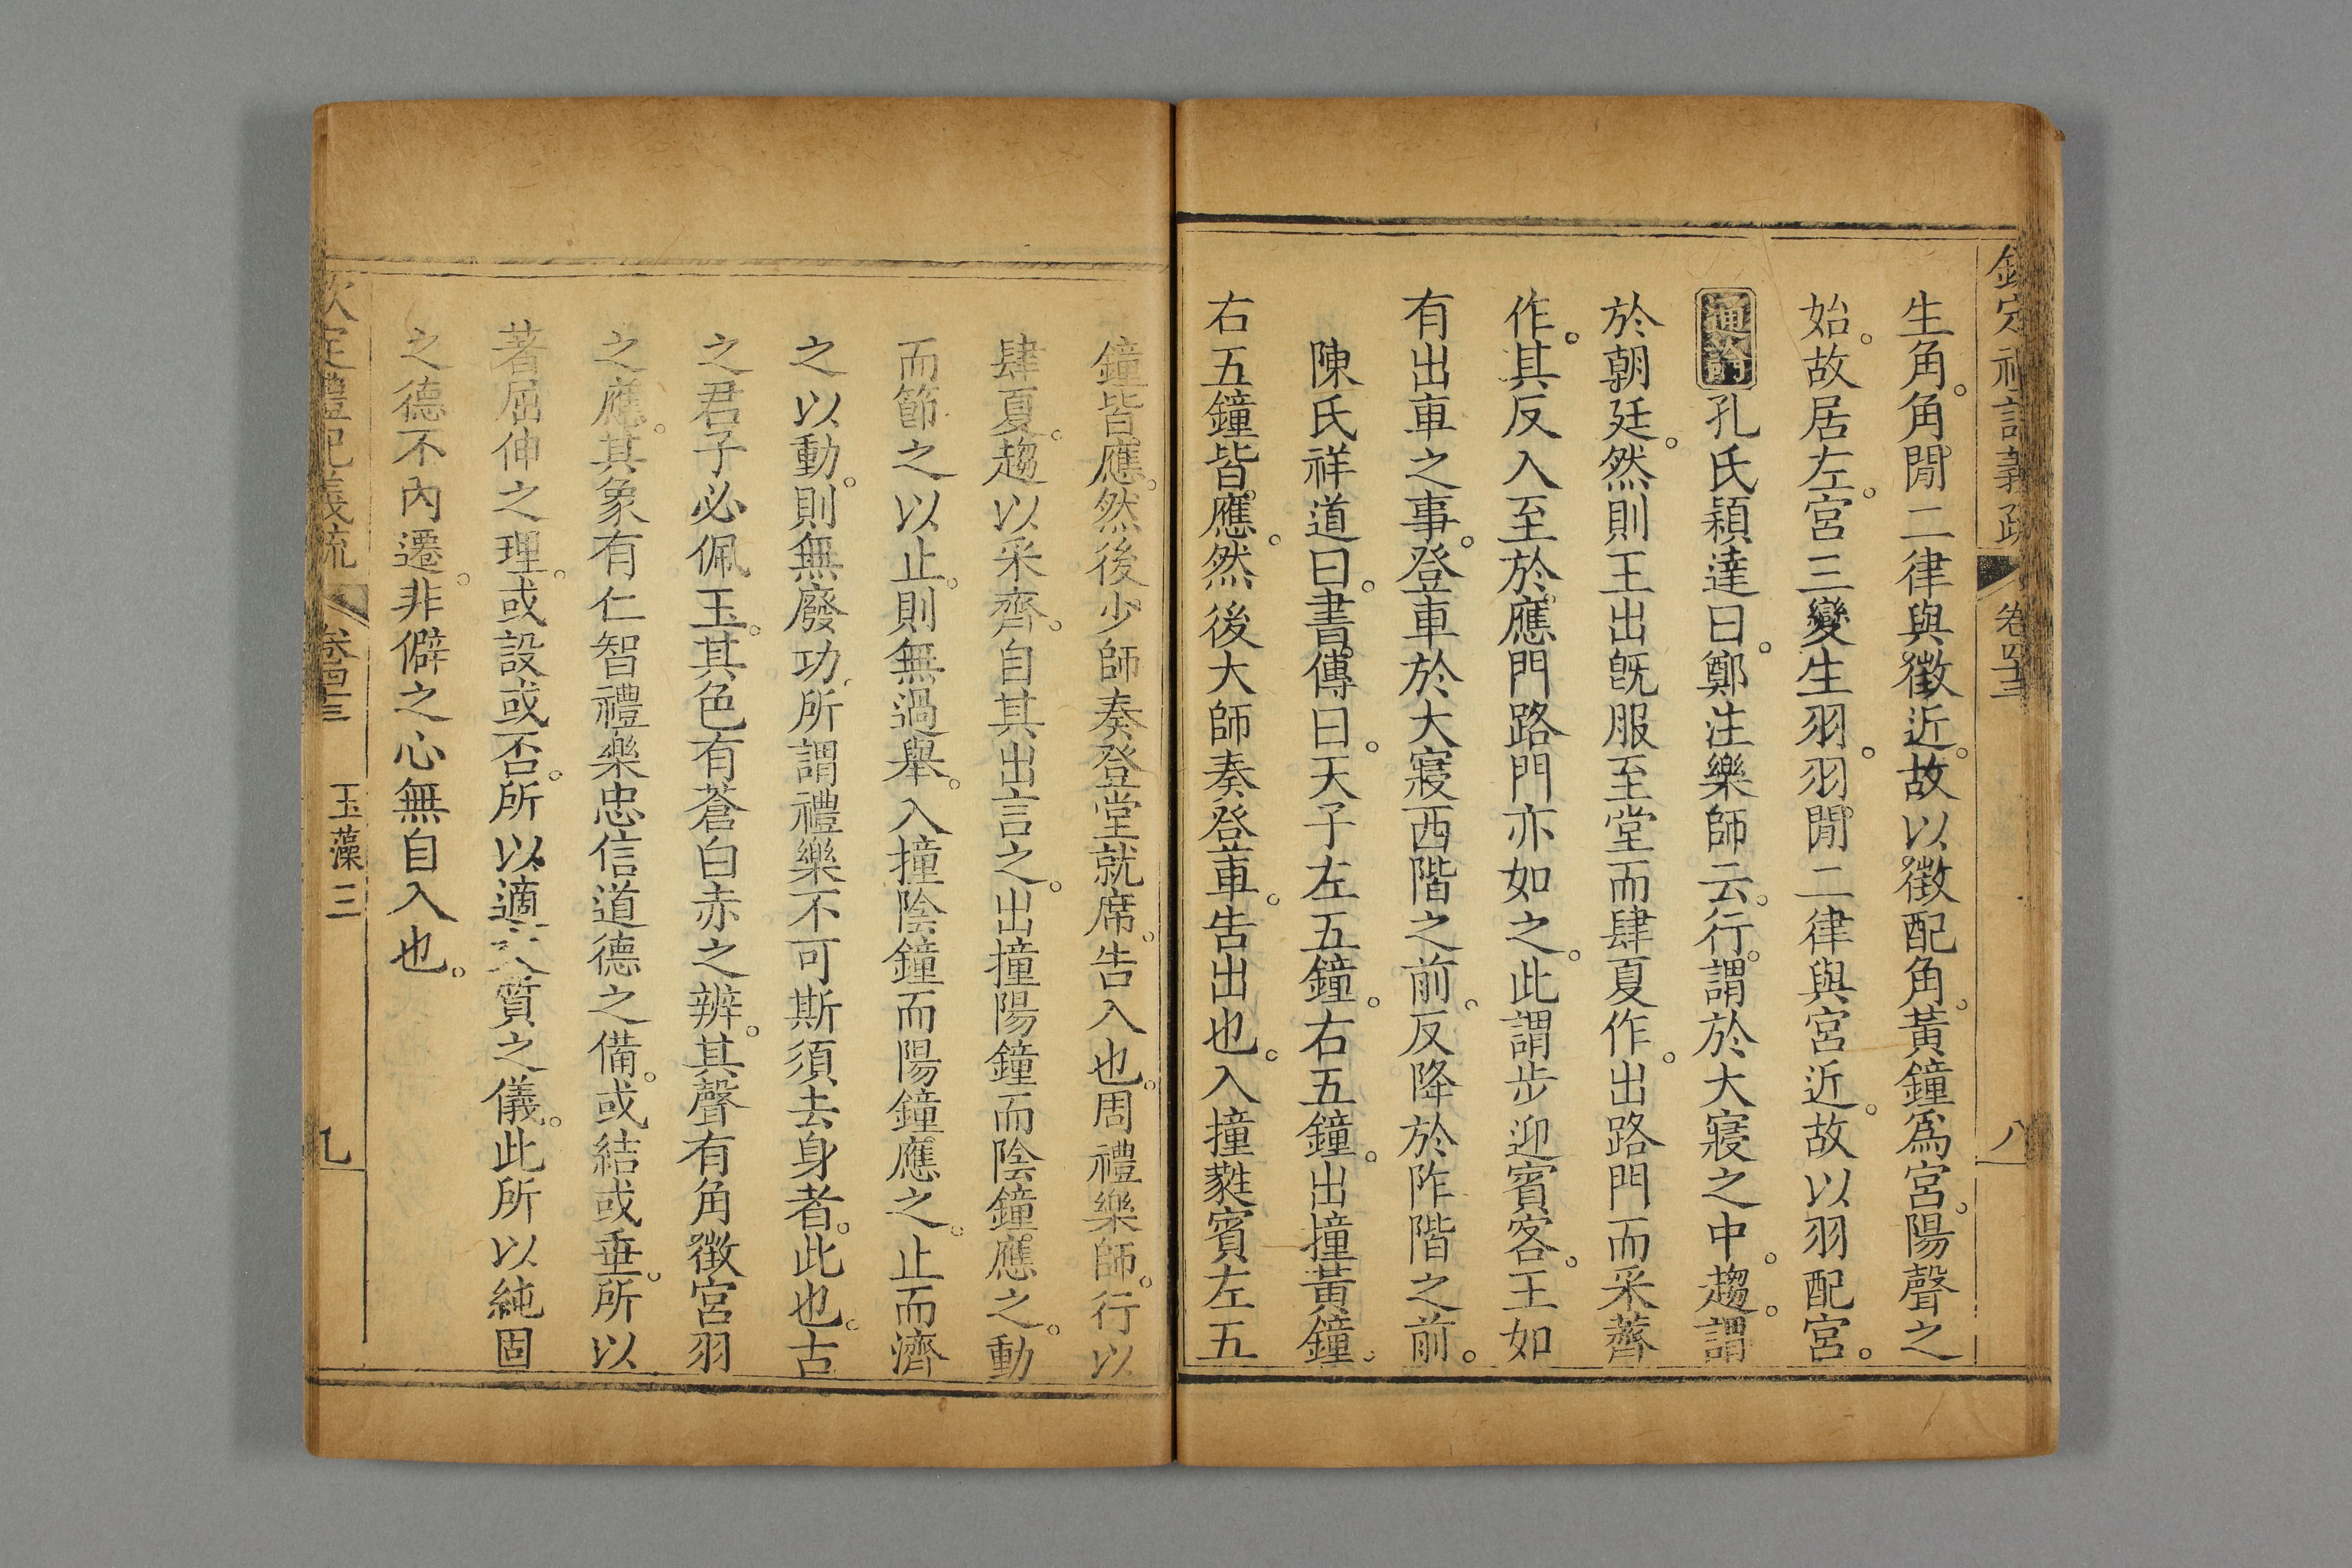 欽定禮記義疏 卷四十三 八
生角。角閒二律與徵近。故以徵配角。黃鐘爲宮。陽聲之
始。故居左。宮三變生羽。羽閒二律與宮近。故以羽配宮。
通論孔氏穎達曰。鄭注樂師云。行。謂於大寢之中。趨。謂
於朝廷。然則王出旣服至堂而肆夏作。出路門而采薺
作。其反入至於應門路門亦如之。此謂步迎賓客。王如
有出車之事。登車於大寢西階之前。反降於阼階之前。
陳氏祥道曰。書傳曰。天子左五鐘。右五鐘。出撞黃鐘。
右五鐘皆應。然後大師奏登車。告出也。入撞蕤賓左五
鐘皆應。然後少師奏登堂就席。告入也。周禮樂師。行以
肆夏。趨以采齊。自其出言之。出撞陽鐘而陰鐘應之。動
而節之以止。則無過舉。入撞陰鐘而陽鐘應之。止而濟
之以動。則無廢功。所謂禮樂不可斯須去身者。此也。古
之君子必佩玉。其色有蒼白赤之辨。其聲有角徵宮羽
之應。其象有仁智禮樂忠信道德之備。或結或垂。所以
著屈伸之理。或設或否。所以適質之儀。此所以純固
之德不內遷。非僻之心無自入也。
欽定禮記義疏 卷四十三 玉藻三 九